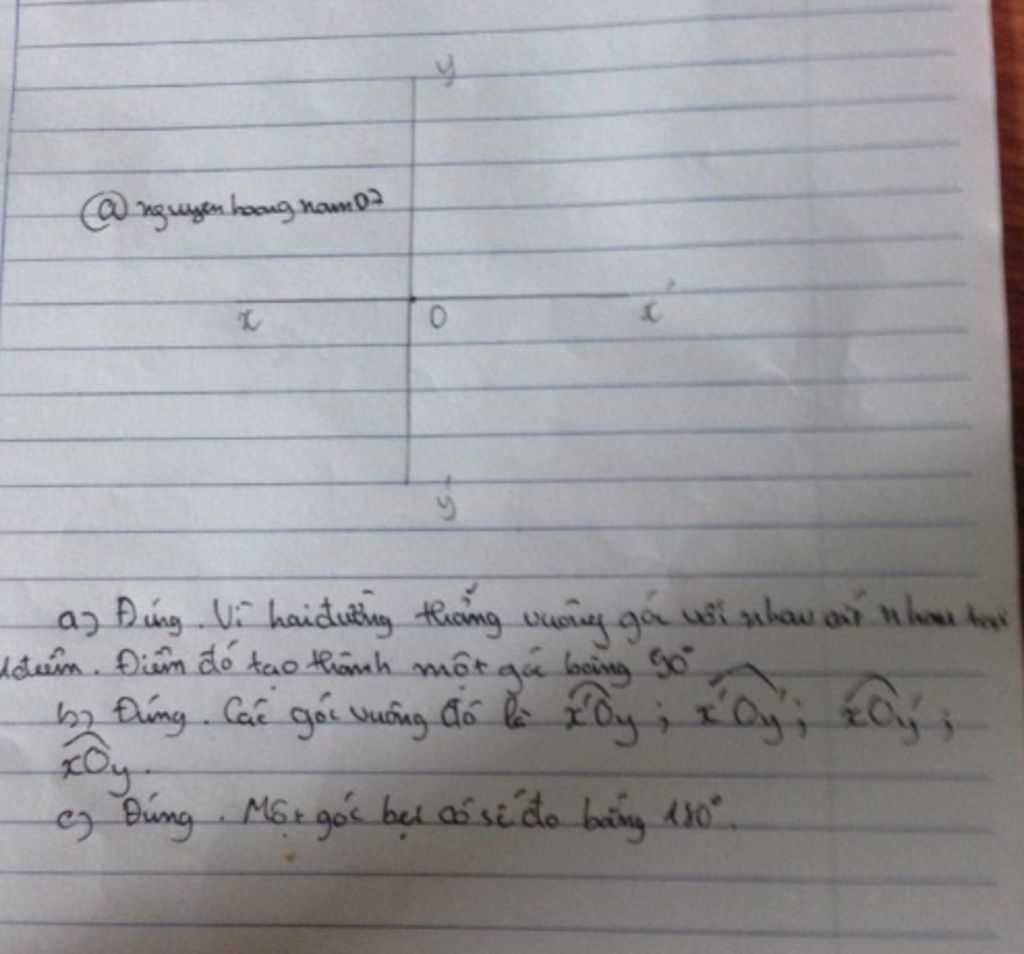 y
@nguyenhoangnam02
x O x'
y'
a) Đúng. Vì hai đường thẳng vuông góc với nhau cắt nhau tại
1 điểm. Điểm đó tạo thành một góc bằng 90°
b) Đúng. Các góc vuông đó là x'Oy ; x'Oy' ; xOy' ;
xOy.
c) Đúng. Một góc bẹt có số đo bằng 180°.